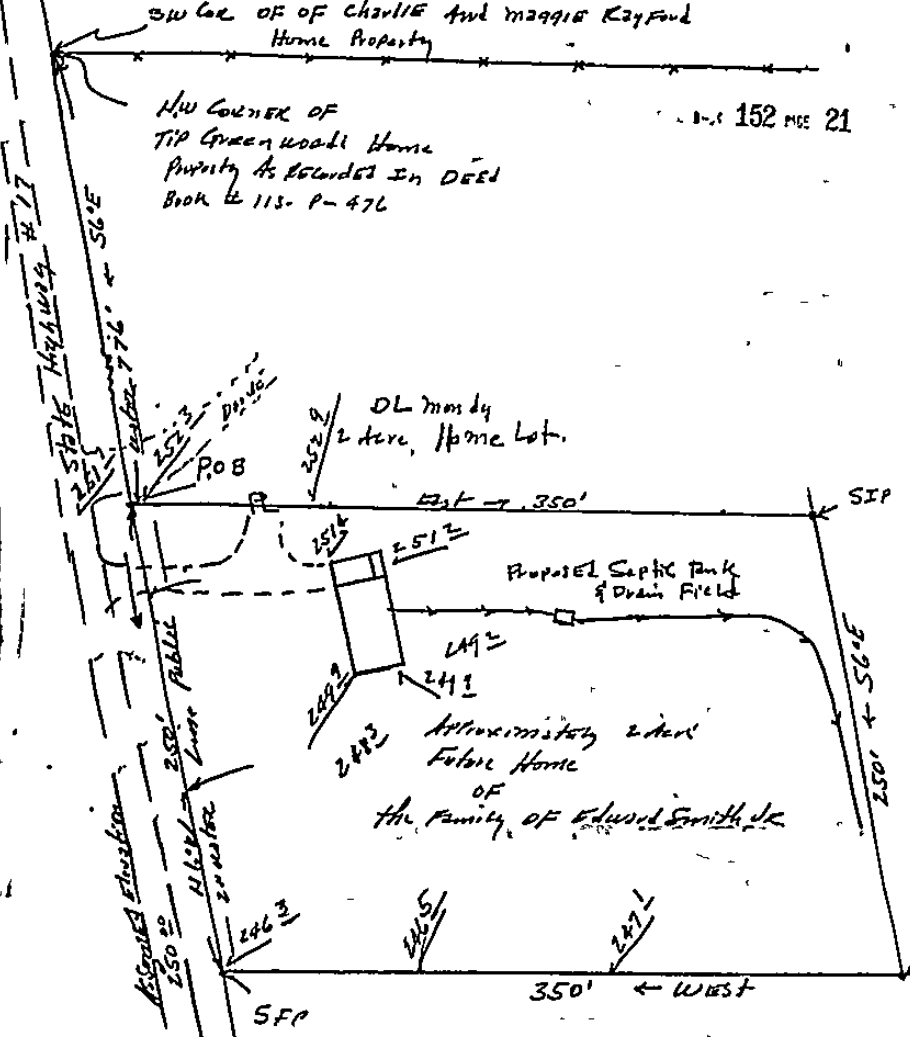 SW Cor OF OF CharliE And maggiE Rayford
Home Property
N.W CornER OF
Tip Greenwoods Home
Property As Recorded In DEEd
Book # 113- P- 476
152 21
State Highway # 17
776' ← S6°E
252 3
251
P.O B
252 9
DL
2 Acre, Home Lot.
East → 350'
SIP
251
251 2
ProposEd Septic Tank
& Drain Field
249 2
249
248 3
Approximately 2 Acre
Future Home
OF
the Family OF Edward Smith JR
250' ← S6°E
250'
Public
Line
Assumed Elevation
250 00
N6°W →
246 3
246 5
247 1
350' ← WEST